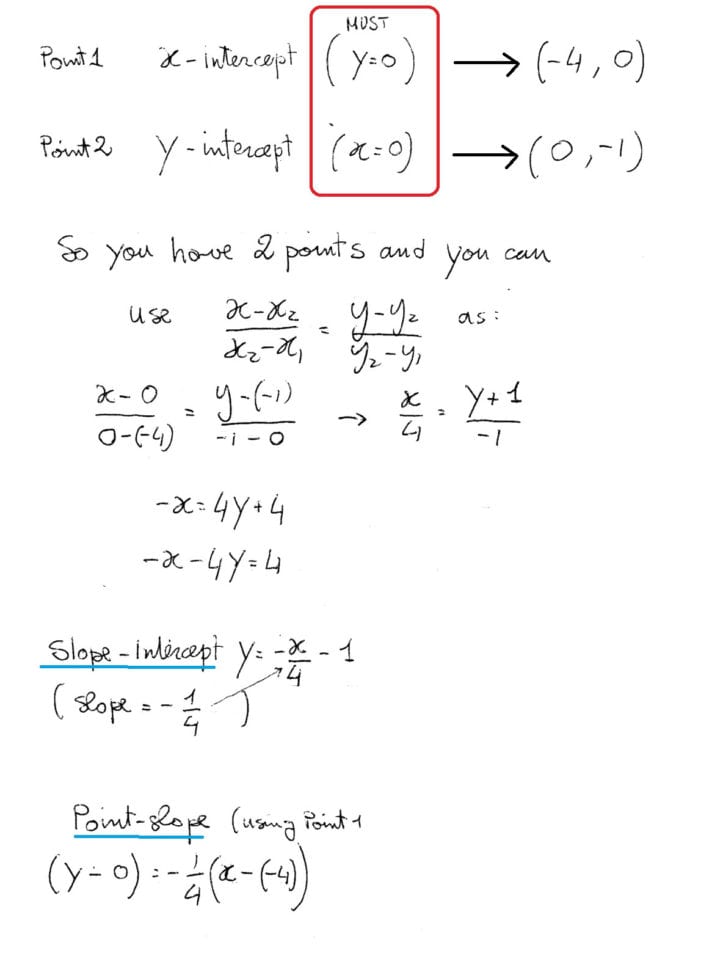 MUST
Point 1 x-intercept (y=0) → (-4, 0)
Point 2 y-intercept (x=0) → (0, -1)
So you have 2 points and you can
use (x-x₂)/(x₂-x₁) = (y-y₂)/(y₂-y₁) as:
(x-0)/(0-(-4)) = (y-(-1))/(-1-0) → x/4 = (y+1)/-1
-x=4y+4
-x-4y=4
Slope-intercept y=-x/4 - 1
(slope = -1/4)
Point-slope (using Point 1
(y-0)=-1/4(x-(-4))